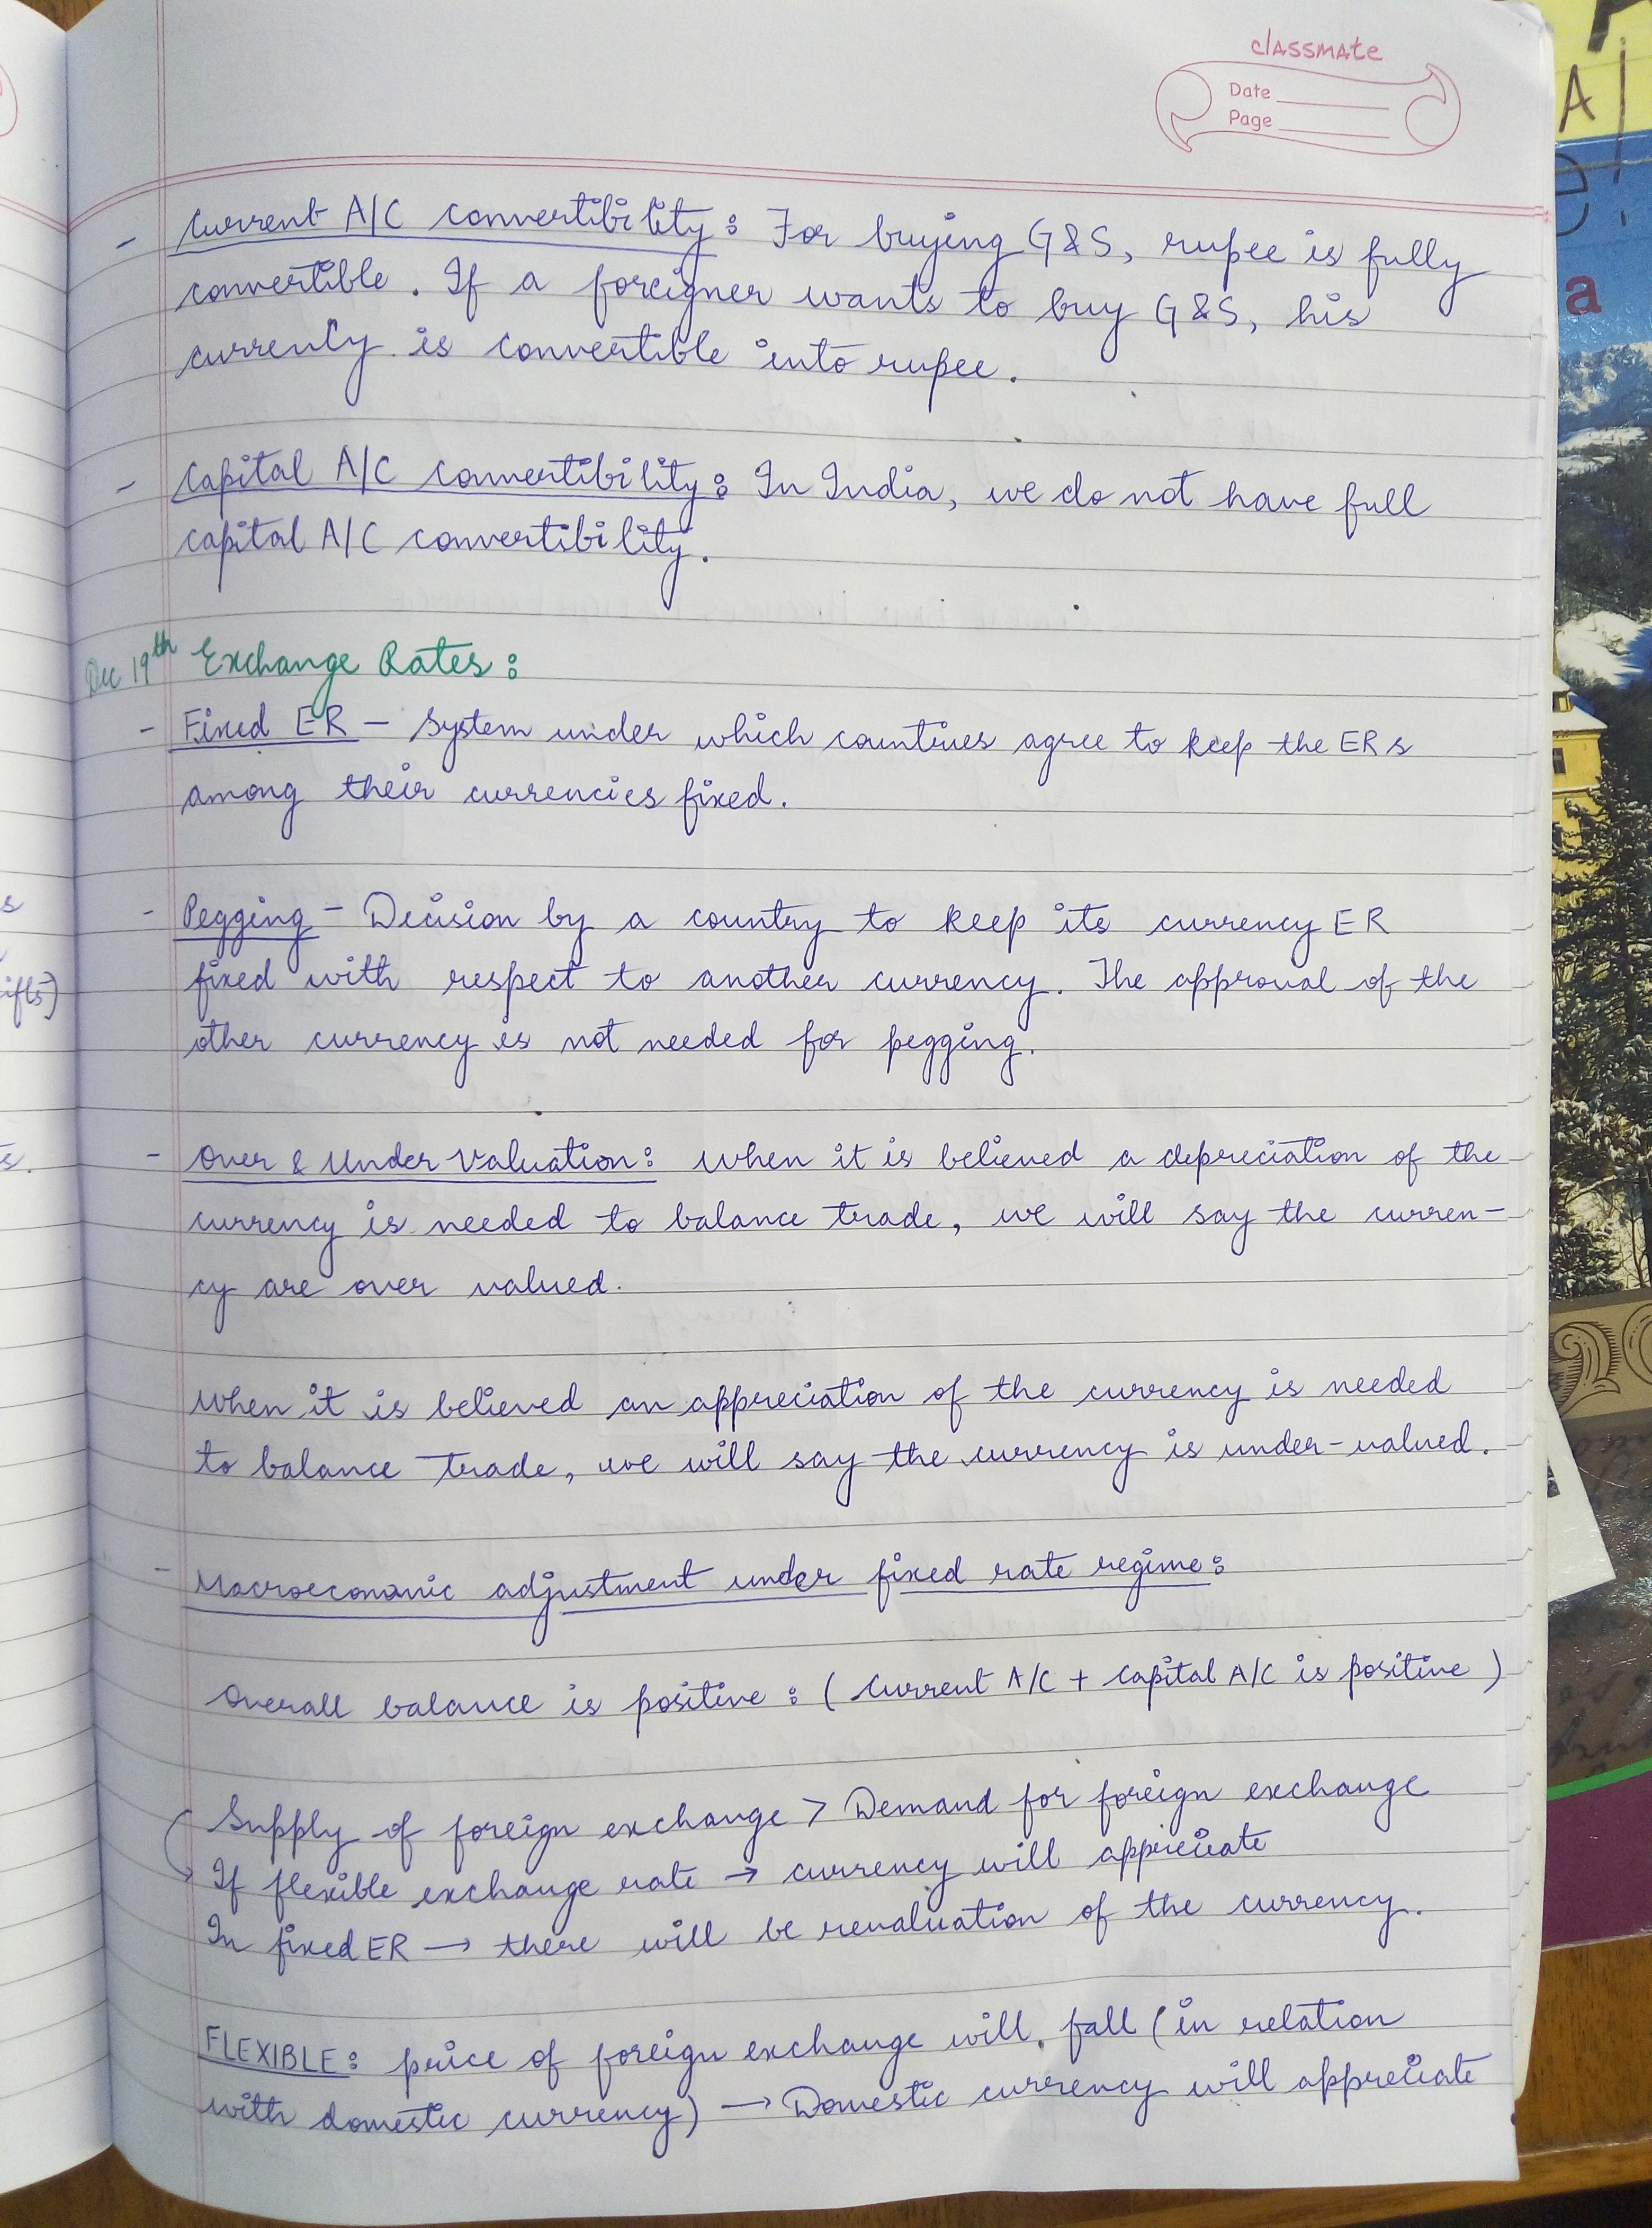 classmate
Date
Page
- Current A/C convertibility : For buying G&S, rupee is fully
convertible. If a foreigner wants to buy G&S, his
currency is convertible into rupee.
- Capital A/C convertibility : In India, we do not have full
capital A/C convertibility.
Dec 19th Exchange Rates :
- Fixed ER - System under which countries agree to keep the ERs
among their currencies fixed.
- Pegging - Decision by a country to keep its currency ER
fixed with respect to another currency. The approval of the
other currency is not needed for pegging.
- Over & Under Valuation : When it is believed a depreciation of the
currency is needed to balance trade, we will say the curren-
cy are over valued.
When it is believed an appreciation of the currency is needed
to balance trade, we will say the currency is under-valued.
- Macroeconomic adjustment under fixed rate regime :
Overall balance is positive : ( Current A/C + Capital A/C is positive )
Supply of foreign exchange > Demand for foreign exchange
If flexible exchange rate → currency will appreciate
In fixed ER → there will be revaluation of the currency.
FLEXIBLE : price of foreign exchange will fall (in relation
with domestic currency) → Domestic currency will appreciate